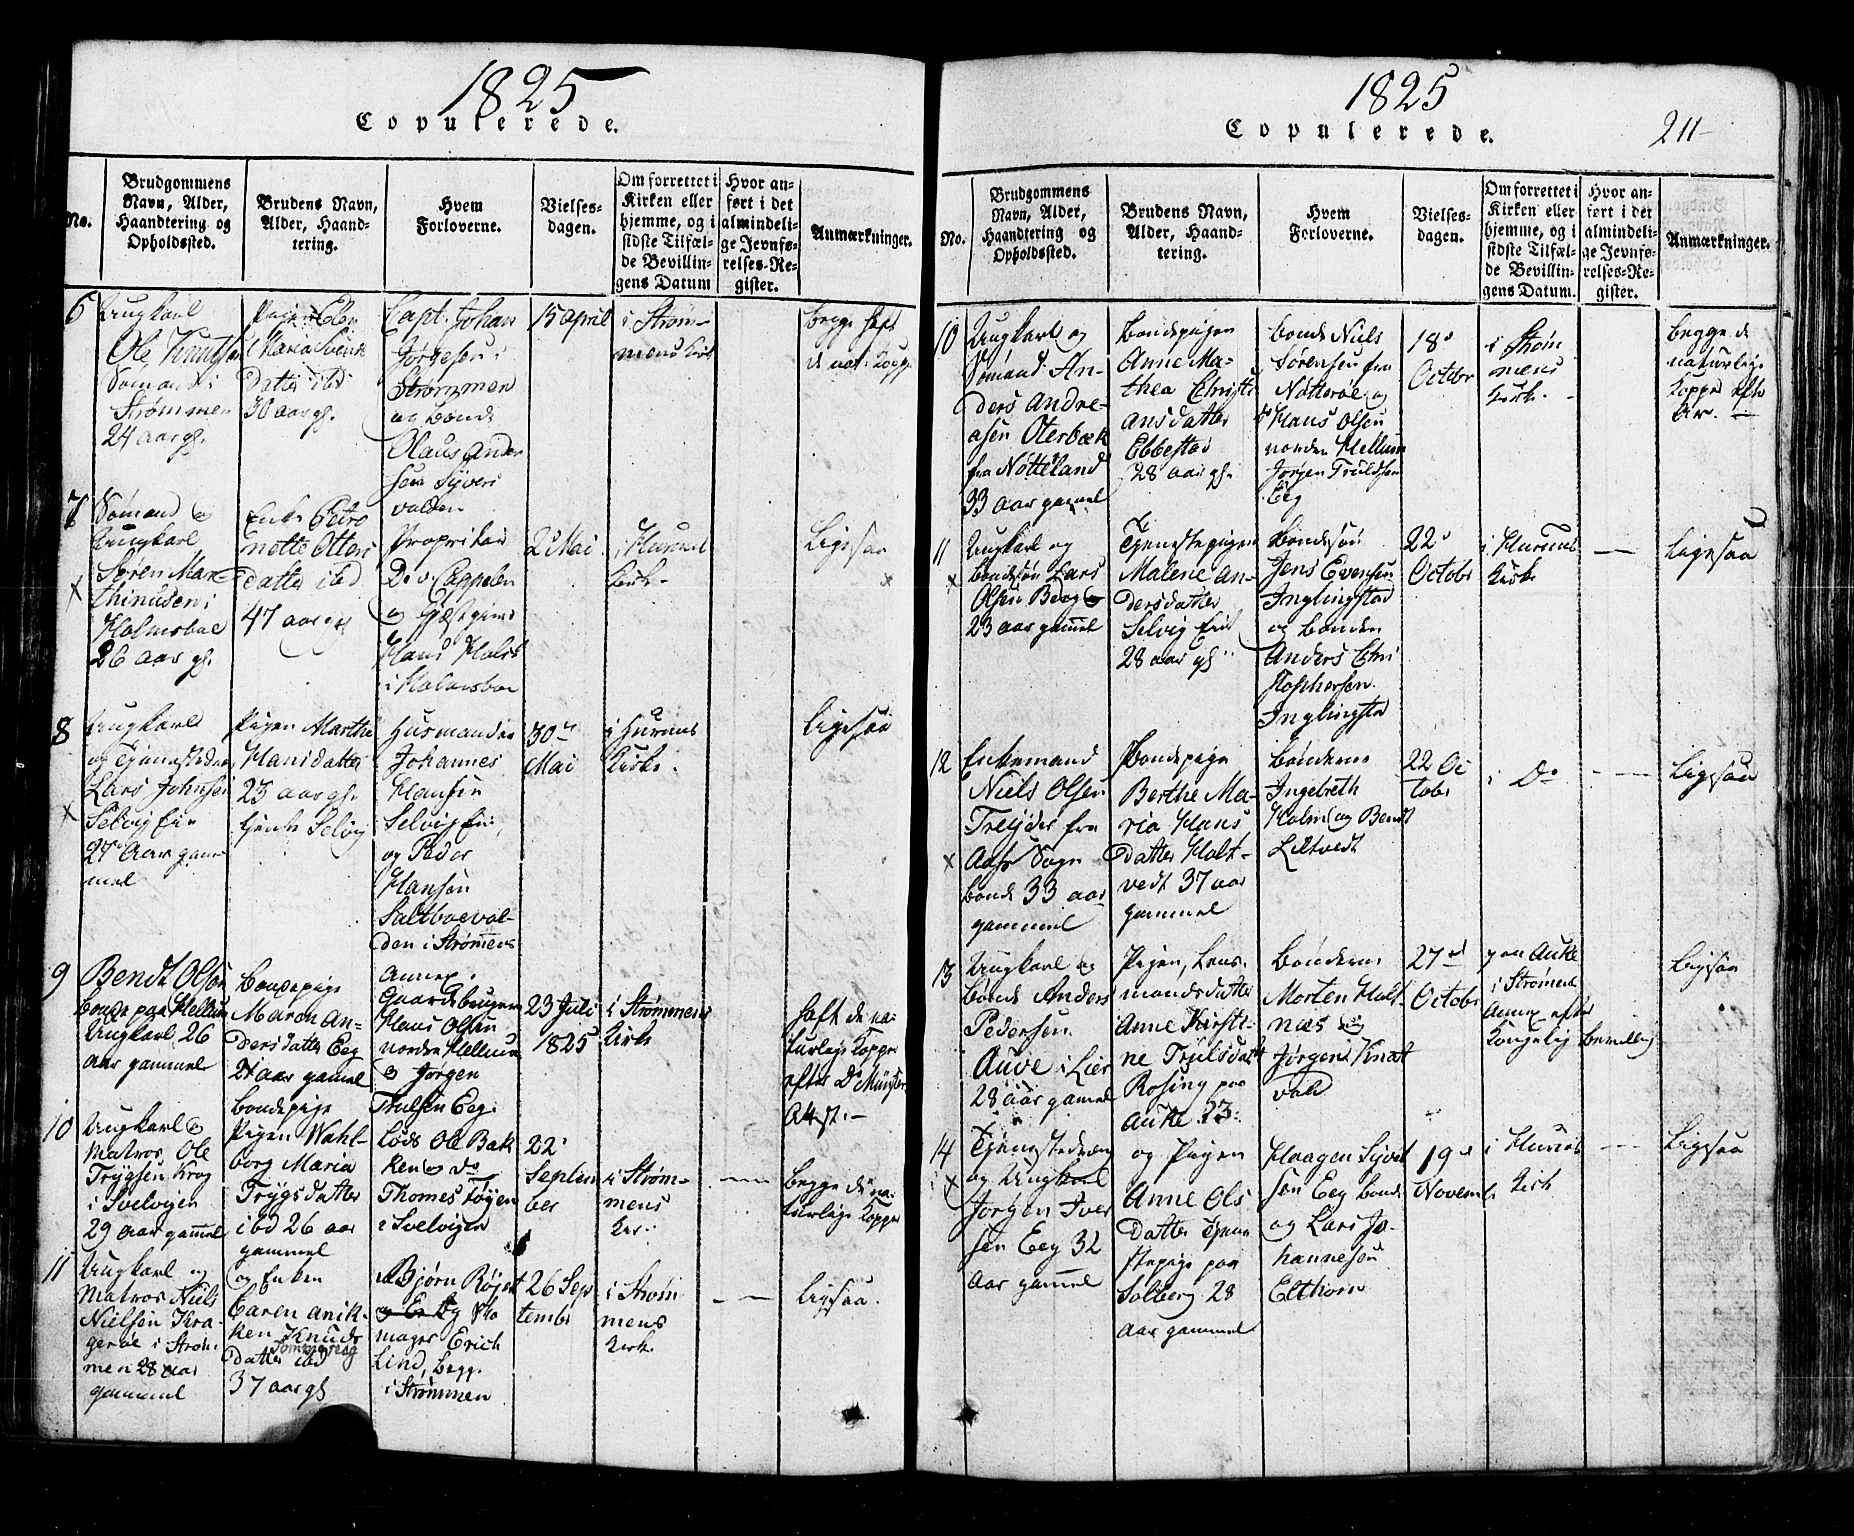 1825
Copulerede.
No.
Brudgommens
Navn, Alder,
Haandtering og
Opholdssted.
Brudens Navn,
Alder, Haand-
tering.
Hvem
Forloverne.
Vielses-
dagen.
Om forrettet i
Kirken eller
hjemme, og i
sidste Tilfæl-
de Bevillin-
gens Datum
Hvor an-
ført i det
almindeli-
ge Jevnfø-
relses-Re-
gister.
Anmærkninger.
6
Ungkarl
Ole Knutsen
Sömand i
Strømmen
24 aar gl.
Pigen Elen
Maria Svends
Datter ibd
30 aar gl.
Capt. Johan
Jörgesen i
Strømmen
og bonde
Olaus Ander
sen Syvers
valden
15 april
i Strøm-
mens Kirk
begge haft
de nat. Kopp.
7
Sömand og
Ungkarl
Søren Mar-
thinusen i
Holmsboe
26 aar gl.
Enke Petro
nette Otters
datter ibd
47 aar gl
Proprietair
D. v. Cappelen
og Gjæstgiver
Hans Holst
i Holmsboe
2d Mai
i Hurums
Kirke
Ligesaa
8
Ungkarl
og Tjenestedreng
Lars Johnsen
Selvig Eie
27 Aar gam
mel
Pigen Marthe
Hansdatter
23 aar gl.
tjente Selvig
Husmanden
Johannes
Hansen
Selvig Eie,
og Peder
Hansen
Saltboeval-
den i Strømens
annex.
30te
Mai
i Hurums
Kirke.
Ligesaa
9
Bendt Olsen
bonde paa Hellum
Ungkarl 26
aar gammel
bondepige
Maren An-
dersdatter Eeg
21 aar gammel
Gaardbruger
Hans Olsen
nordre Hellum
og Jørgen
Trulsen Eeg.
23 Juli
1825
i Strømmens
Kirke
haft de na-
turlige Kopper
efter Dr Münsters
Attst.
10
Ungkarl og
Matros Ole
Trygsen Krog
i Svelvigen
29 Aar gammel
bondepige
Pigen Wahl-
borg Maria
Trygsdatter
ibd 26 aar
gammel
Lods Ole Bak
ken og do
Thomes Løyen
i Svelvigen
22
Septem
ber
i Strøm-
mens
Kir.
begge de na-
turlige Kopper
11
Ungkarl og
Matros Niels
Nielsen Kra
gerøe i Strøm-
men 28 aar
gammel
og Enken
Caren Anik-
ken Knuds
Datter ibd
37 aar gl
Bjørn Røjer
og Sko
mager Erich
Lind, begge
i Strømmen
26 Sep
tembr
i Strøm-
mens
Kirke.
Ligesaa.
1825
Copulerede.
211
No.
Brudgommens
Navn, Alder,
Haandtering og
Opholdssted.
Brudens Navn,
Alder, Haand-
tering.
Hvem
Forloverne.
Vielses-
dagen.
Om forrettet i
Kirken eller
hjemme, og i
sidste Tilfæl-
de Bevillin-
gens Datum.
Hvor an-
ført i det
almindeli-
ge Jevnfø-
relses-Re-
gister.
Anmærkninger.
10
Ungkarl og
Sömand An-
ders Andre-
asen Oterbæk
fra Nøtteland
33 aar gammel
bondepigen
Anne Ma-
thea Christi
ansdatter
Ebbestad
28 aar gl.
bonde Niels
Sørensen fra
Nøtterøe og
Hans Olsen
nordre Hellum
Jørgen Truldsen
Eeg
18de
October
i Strøm
mens
Kirke.
begge de
naturlige
Kopper efter
Ar.
11
Ungkarl og
bondesøn Lars
Olsen Berg
23 aar gammel
Tjenestepigen
Malene An-
dersdatter
Selvig Eie
28 aar gl
bondesøn
Jens Evensen
Inglingstad
og bonden
Anders Chri
stophersen
Inglingstad
22d
October
i Hurums
Kirke
Ligesaa
12
Enkemand
Niels Olsen
Treyder fra
Aass Sogn
bonde 33 aar
gammel
bondepige
Berthe Ma-
ria Hans
Datter Holt-
vedt 37 aar
gammel
bönderne
Ingebreth
Holm og Bendt
Leltvedt
22 Oc
tober
i Do
Ligesaa
13
Ungkarl og
bonde Anders
Pedersen
Auve i Lier
28 aar gammel
Pigen, Lens-
mandsdatter
Anne Kirsti-
ne Trulsdatter
Rosing paa
Auke 23.
bönderne
Morten Holt-
næs og
Jørgen Knat
vold
27d
October
paa Auke
i Strømens
Annex efter
Kongelig bevilling
Ligesaa
14
Tjenestedreng
og Ungkarl
Jørgen Iver
sen Eeg 32
aar gammel
og Pigen
Anne Ols
Datter Tjene
stepige paa
Solberg 28
aar gammel
Haagen Syvert
sen Eeg bonde
og Lars Jo-
hannesen
Elthorn
19d
Novembr
i Hurums
Kirk
Ligesaa